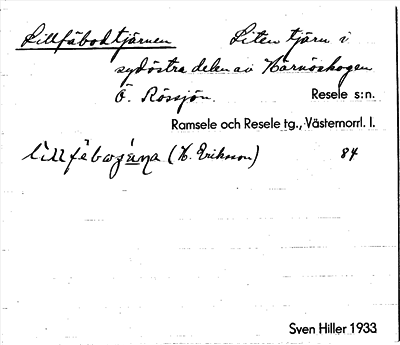 Lillfäbodtjärnen Liten tjärn i
sydöstra delen av Kärnöskogen
Ö. Rössjön. Resele s:n.
Ramsele och Resele tg., Västernorrl. l.
(K. Eriksson) 84
Sven Hiller 1933